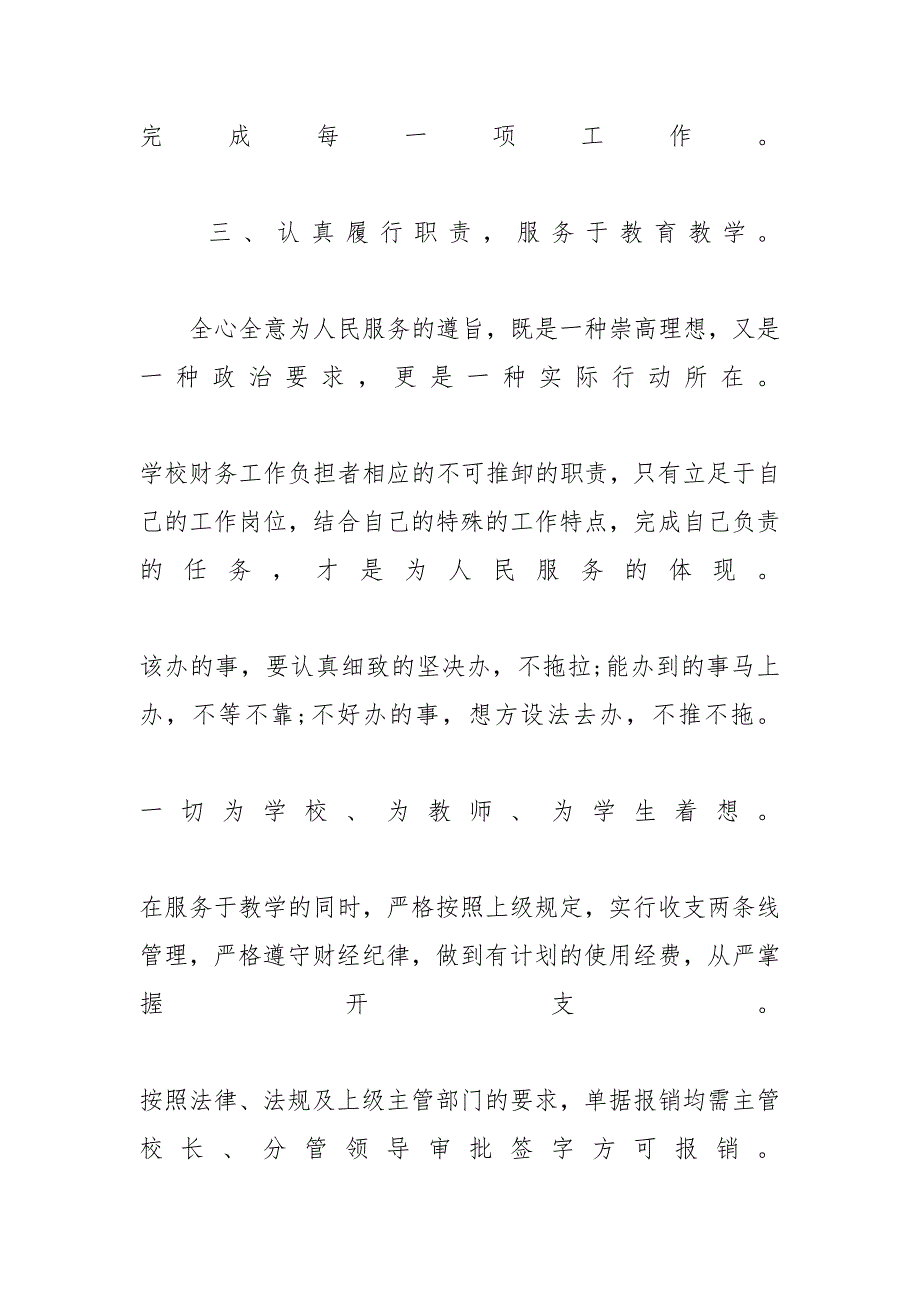 完成每一项工作。
三、认真履行职责，服务于教育教学。
全心全意为人民服务的遵旨，既是一种崇高理想，又是
一种政治要求，更是一种实际行动所在。
学校财务工作负担者相应的不可推卸的职责，只有立足于自
己的工作岗位，结合自己的特殊的工作特点，完成自己负责
的任务，才是为人民服务的体现。
该办的事，要认真细致的坚决办，不拖拉;能办到的事马上
办，不等不靠;不好办的事，想方设法去办，不推不拖。
一切为学校、为教师、为学生着想。
在服务于教学的同时，严格按照上级规定，实行收支两条线
管理，严格遵守财经纪律，做到有计划的使用经费，从严掌
握开支。
按照法律、法规及上级主管部门的要求，单据报销均需主管
校长、分管领导审批签字方可报销。